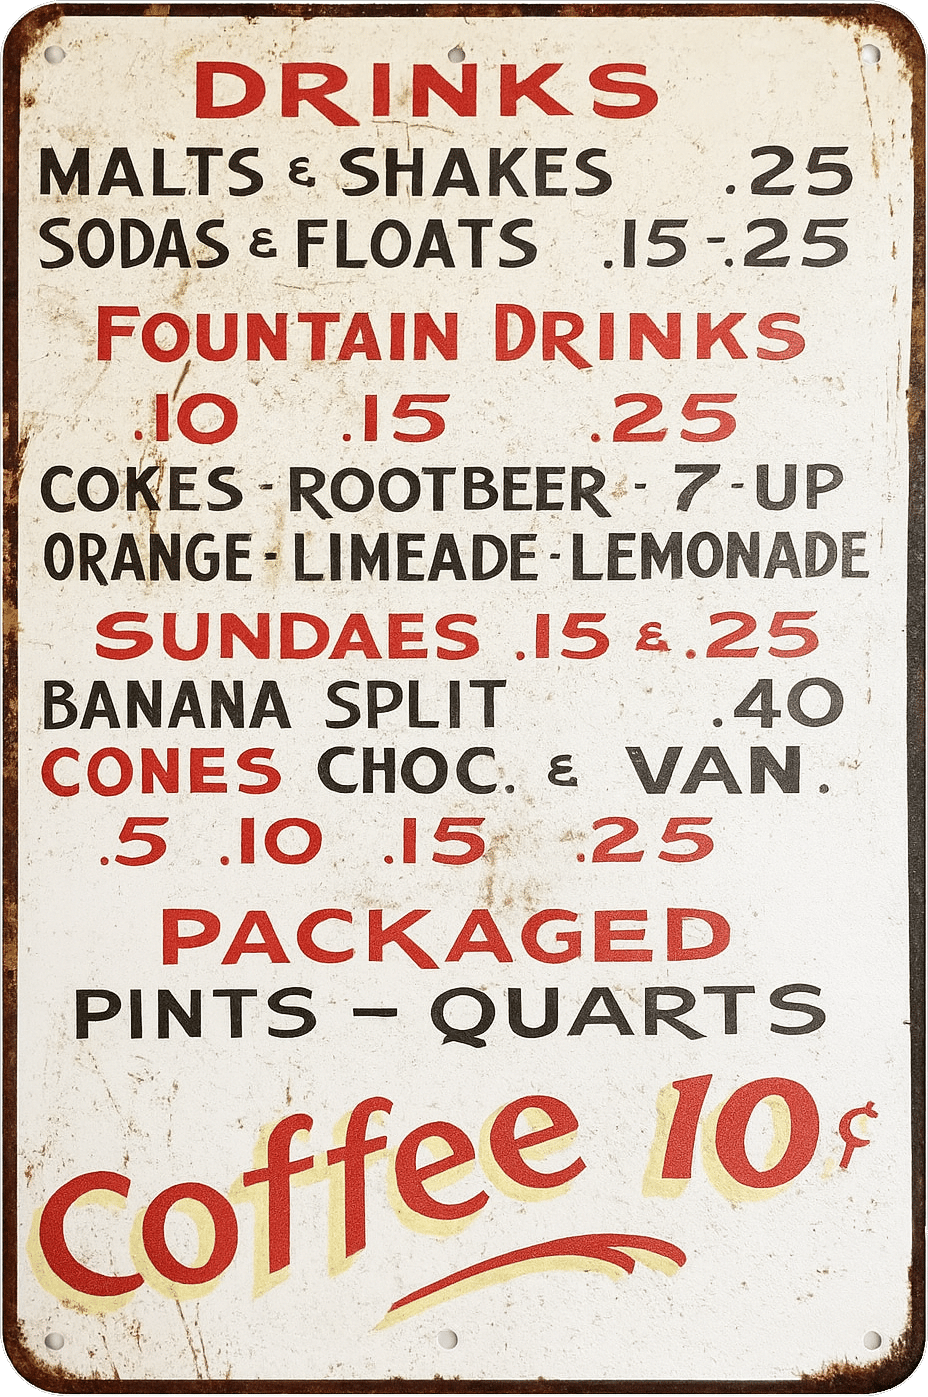 DRINKS
MALTS & SHAKES .25
SODAS & FLOATS .15-.25
FOUNTAIN DRINKS
.10 .15 .25
COKES - ROOTBEER - 7-UP
ORANGE - LIMEADE - LEMONADE
SUNDAES .15 & .25
BANANA SPLIT .40
CONES CHOC. & VAN.
.5 .10 .15 .25
PACKAGED
PINTS – QUARTS
Coffee 10¢